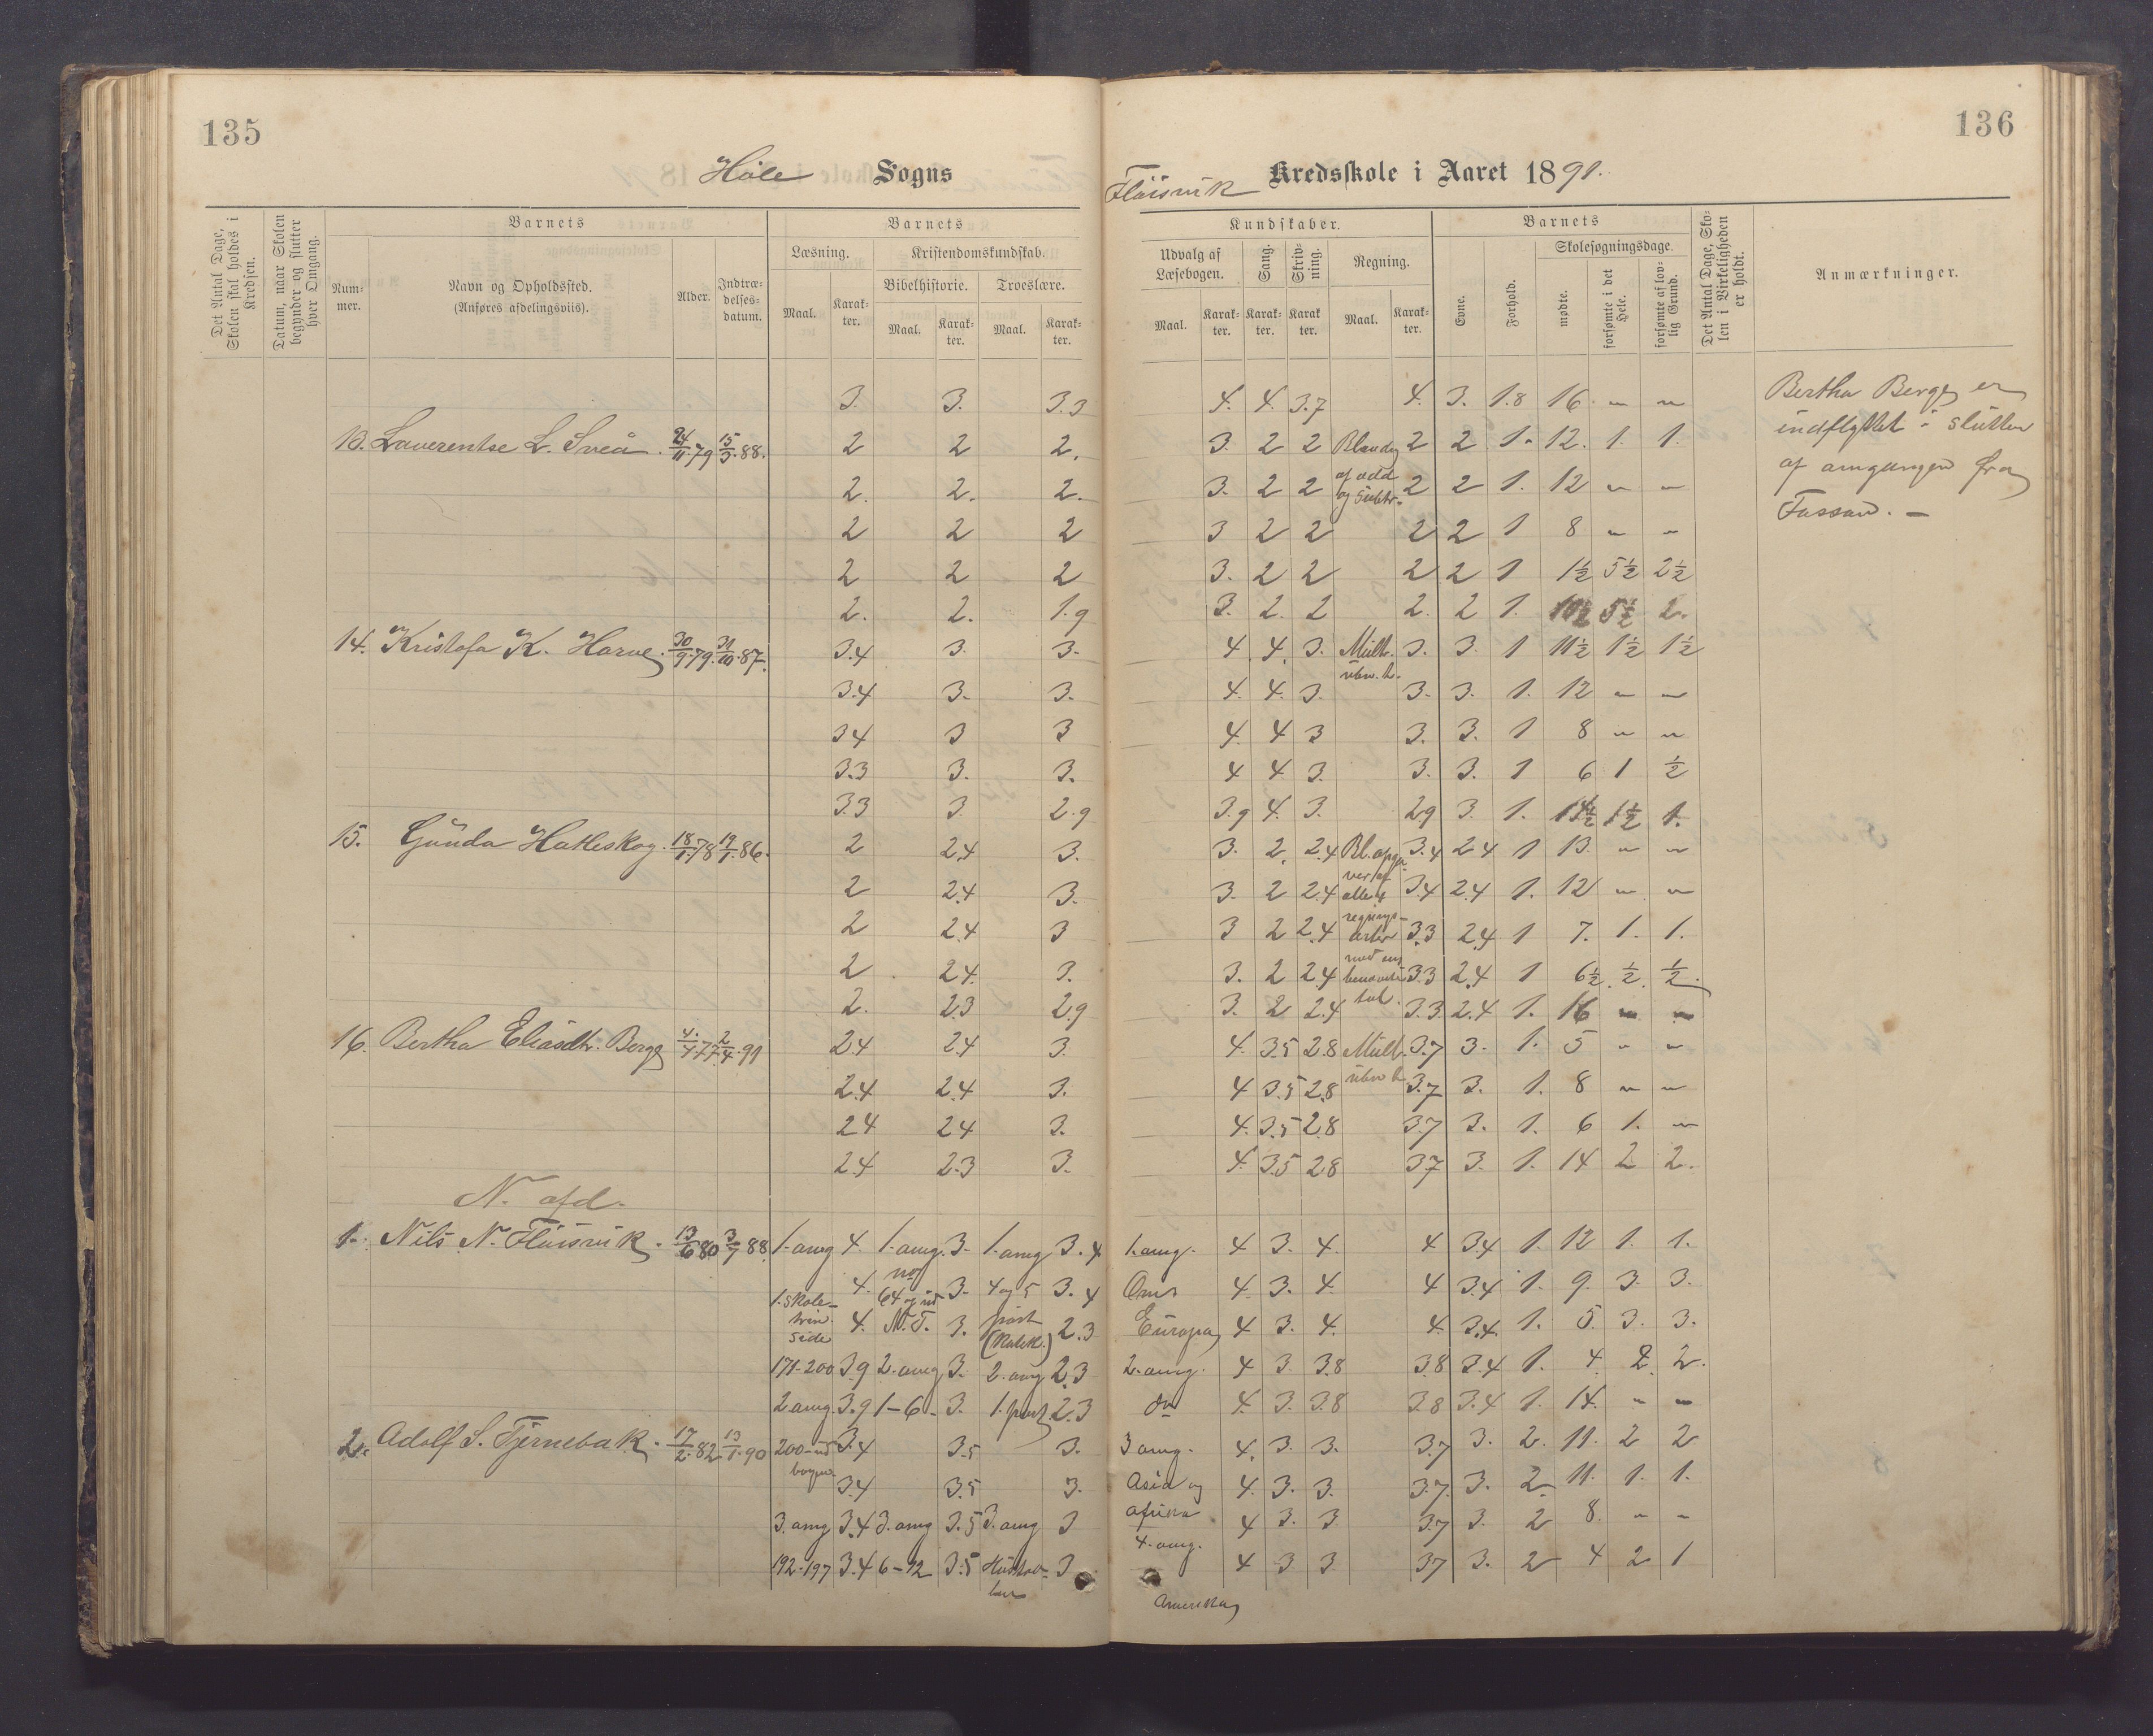 135
136
Høle Sogns
Fløisvik Kredsskole i Aaret 1891.
Det Antal Dage, Skolen skal holdes i Kredsen.
Datum, naar Skolen begynder og slutter hver Omgang.
Barnets
Nummer.
Navn og Opholdssted.
(Anføres afdelingsviis).
Alder.
Indtrædelsesdatum.
Barnets
Læsning.
Kristendomskundskab.
Bibelhistorie. Troeslære.
Maal. Karakter. Maal. Karakter. Maal. Karakter.
Kundskaber.
Udvalg af Læsebogen.
Sang.
Skrivning.
Regning.
Maal. Karakter. Karakter. Karakter Maal. Karakter.
Barnets
Evne.
Forhold.
Skolesøgningsdage.
mødte.
forsømte i det Hele.
forsømte af lovlig Grund.
Det Antal Dage, Skolen i Virkeligheden er holdt.
Anmærkninger.
3. 3. 3.3 4. 4. 3.7 4. 3. 1.8 16 - -
Bertha Berge er
indflyttet i slutten
af omgangen fra
Fossan. -
13. Laverentse L. Sveå. 24/11.79 15/3.88. 2 2 2. 3. 2 2 Bland. 2 2 1. 12. 1. 1.
2. 2. 2. 3. 2 2 af add og Subtr. 2 2 1. 12 - -
2 2 2 3 2 2 2 2 1 8 - -
2 2 2 3. 2 2 2 2 1 1½ 5½ 2½
2. 2. 1.9 3. 2. 2 2. 2 1. 10½ 5½ 2.
14. Kristofa K. Harve. 30/9.79. 31/10.87. 3.4 3. 3. 4. 4. 3. Mult. 3. 3. 1 11½ 1½ 1½
3.4 3. 3. 4. 4. 3. 3. 3. 1. 12 - -
34 3 3 4. 4 3 3. 3. 1 8 - -
3.3 3. 3. 4 4 3. 3. 3. 1 6 1 ½
3.3 3 2.9 3.9 4. 3. 29 3. 1. 14½ 1½ 1.
15. Gunda Hatleskog. 18/1.78 19/1.86. 2 2.4 3. 3. 2. 2.4 Bl. opga 3.4 24 1 13. - -
2 2.4 3. 3. 2 2.4 ver af alle 4 3.4 2.4 1. 12 - -
2 2.4 3 3 2 2.4 regnings- arter 3.3 2.4 1 7. 1. 1.
2 2.4. 3. 3. 2 2.4 med en benævnte 3.3 2.4 1 6½. ½. ½.
2. 2.3 2.9 3. 2 2.4 tal. 3.3 2.4 1. 16 - -
16. Bertha Eliasdtr. Berge 4/4.77 2/4.91 2.4 2.4 3. 4. 3.5 2.8 Mult. 3.7 3. 1. 5 - -
2.4 2.4 3. 4 3.5 2.8 3.7 3. 1. 8 - -
24 24 3. 4. 3.5 2.8 3.7 3. 1. 6 1. -
2.4 2.3 3. 4. 3.5 2.8 3.7 3. 1. 14 2 2.
N. afd.
1. Nils N. Fløisvik. 13/6 80 3/9 88. 1. omg 4. 1. omg. 3. 1. omg 3.4 1. omg. 4 3. 4. 4 3.4 1. 12 1. 1.
1. skole- 4. 64 og ud 3. 4 og 5 3.4 Oms 4. 3. 4. 4 3.4 1. 9. 3. 3.
trin. side 4. N.T. 3. part (Katek.) 2.3 Europa 4 3. 4. 4. 3.4. 1. 5. 3. 3.
171-200 3.9 2. omg 3. 2. omg 2.3 2. omg. 4 3 3.8 3.8 3.4 1. 4 2. 2.
2 omg. 3.9 1-6. 3. 1. part 2.3 do 4. 3. 3.8 3.8 3.4 1. 14. - -
2. Adolf S. Tjernebak. 17/2.82 13/1.90 200-ud bogen 3.4 3.5 3. 3 omg. 4. 3. 3. 3.7 3. 2. 11. 2 2
3.4 3.5 3. Asia og 4. 3. 3. 3.7. 3. 2. 11. 1. 1.
3. omg 3.4 3. omg 3.5 3. omg 3 Afrika 4 3. 3 3.7 3. 2 8. - -
4. omg.
192-197 3.4 6-12 3.5 Hustav- len 3 4 3 3 37 3. 2 4 2 1
Amerika